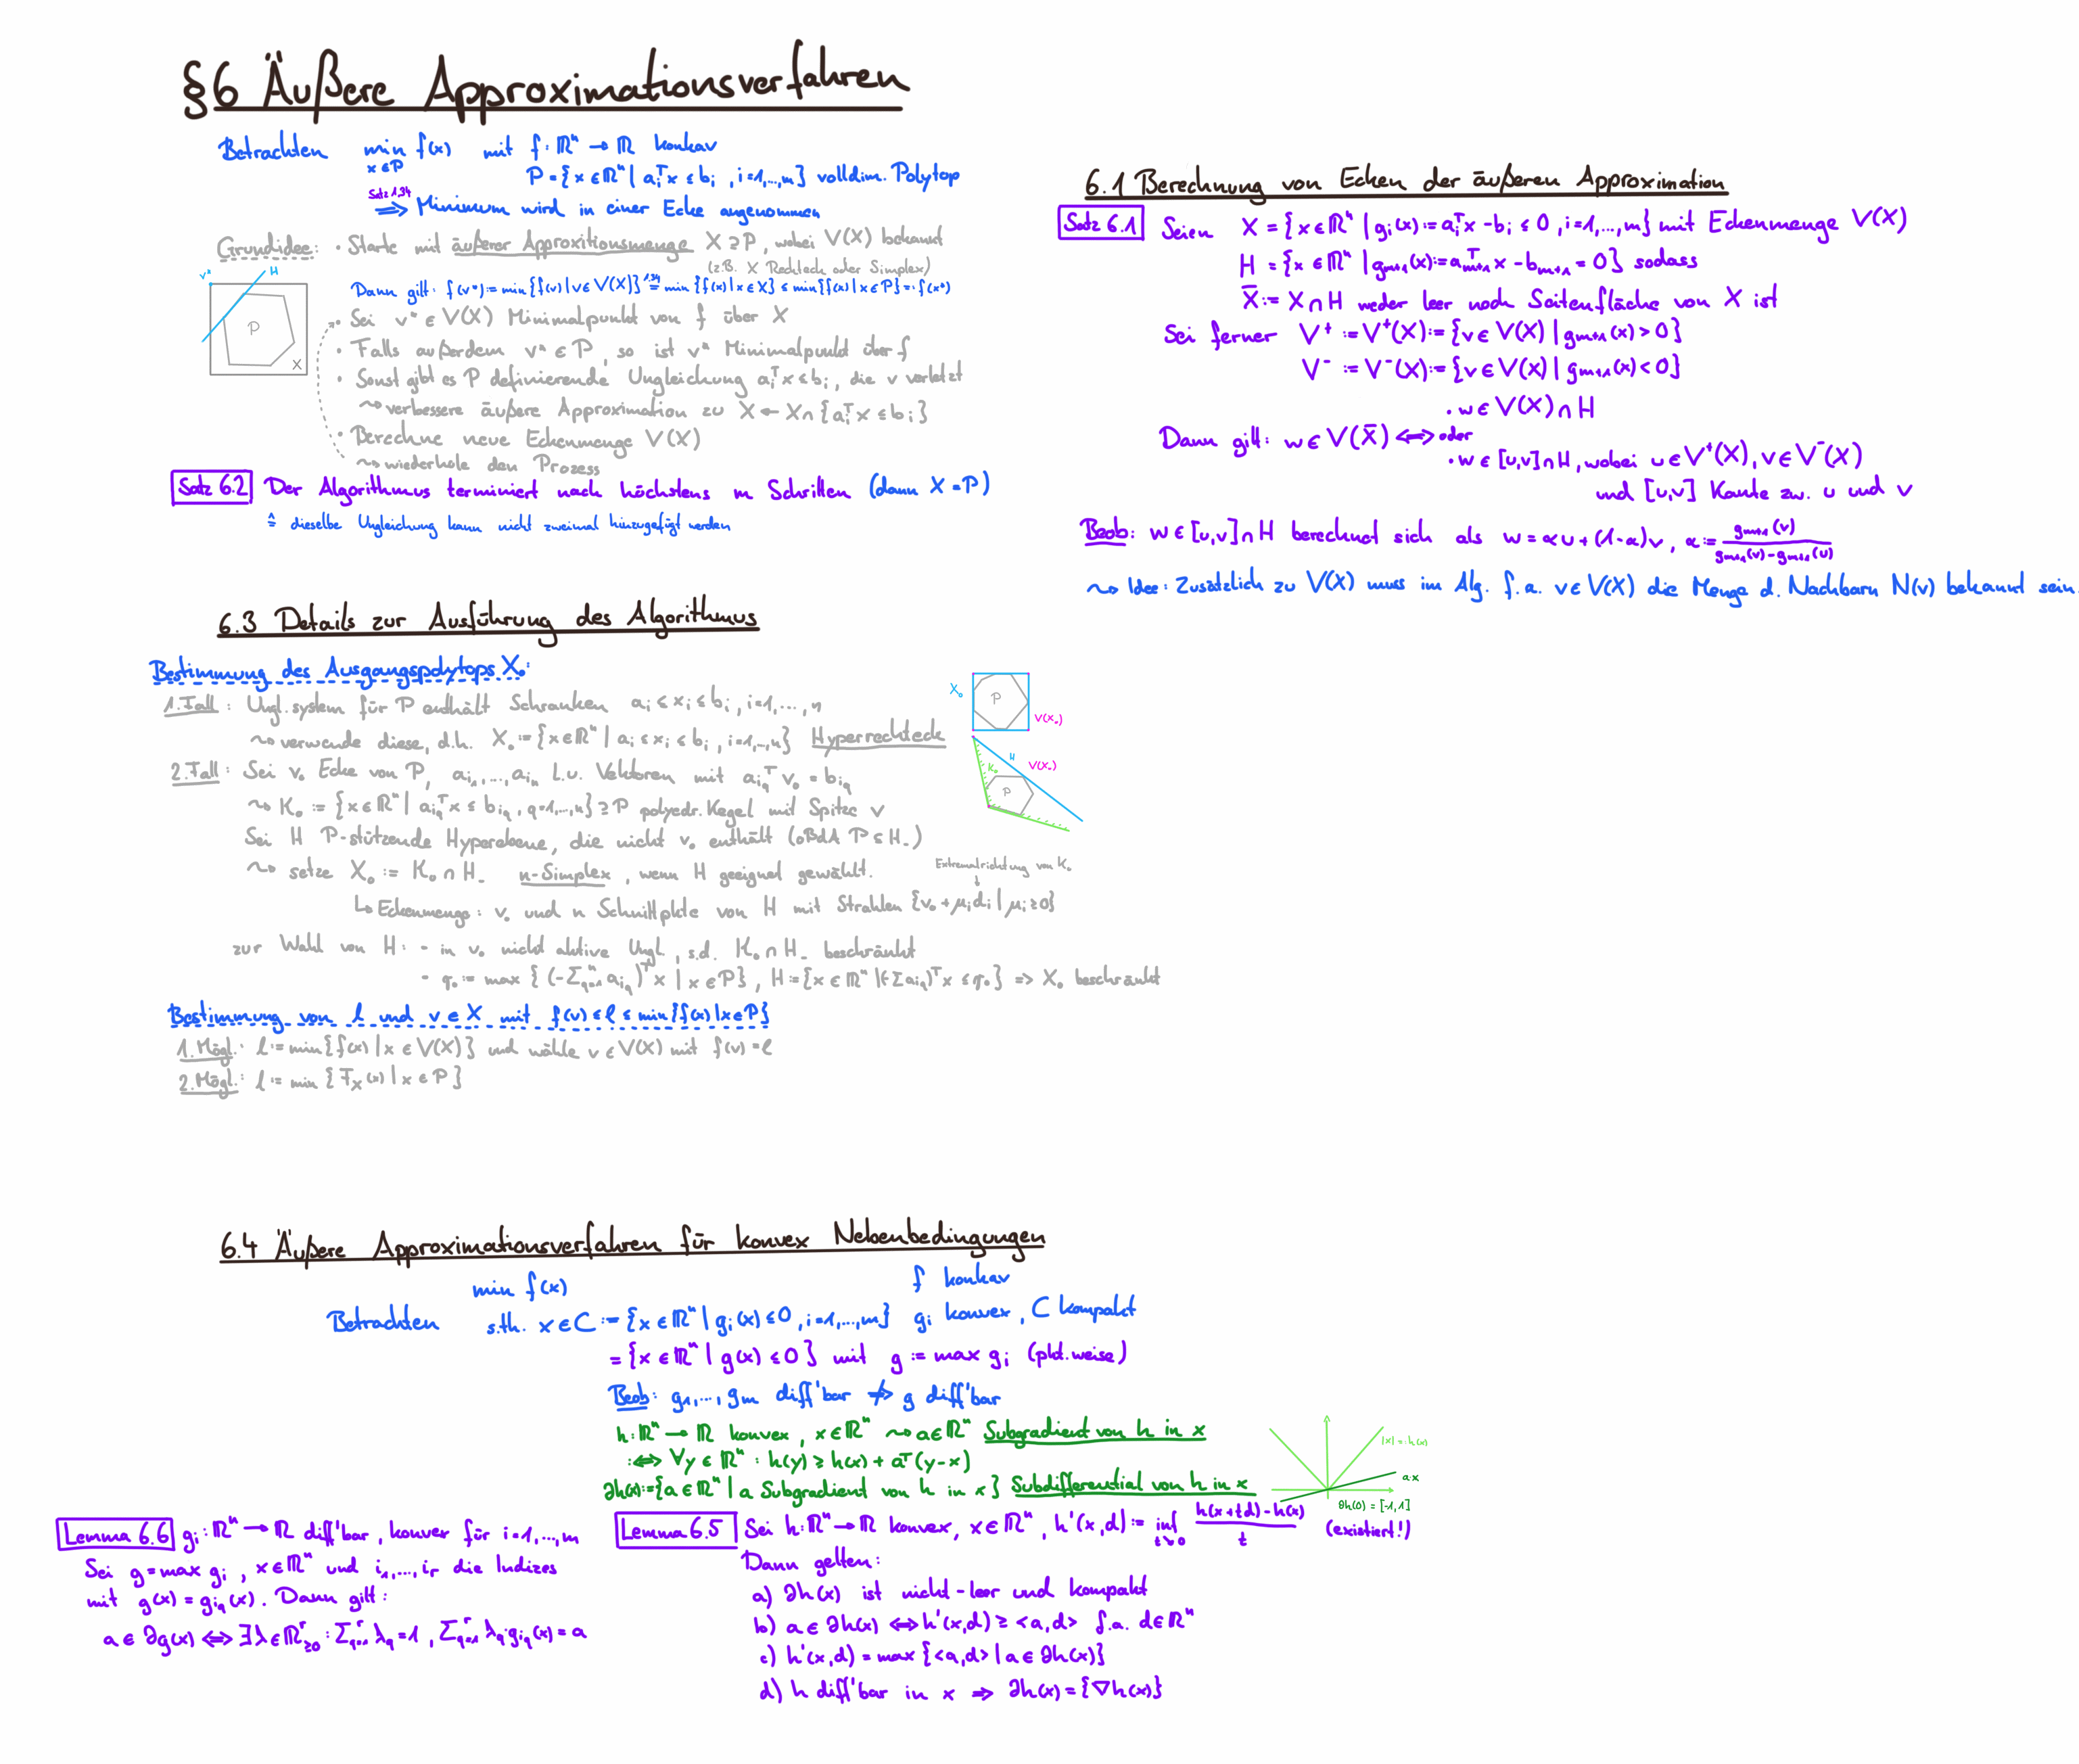 §6 Äußere Approximationsverfahren
Betrachten min f(x) mit f: ℝⁿ → ℝ konkav
x ∈ P
P = {x ∈ ℝⁿ | aᵢᵀx ≤ bᵢ , i=1,...,m} volldim. Polytop
Satz 1.34
⟹ Minimum wird in einer Ecke angenommen
Grundidee: • Starte mit äußerer Approxitionsmenge X ⊇ P, wobei V(X) bekannt
(z.B. X Rechteck oder Simplex)
Dann gilt: f(v*) := min{f(v) | v ∈ V(X)} =^{1.34} min{f(x) | x ∈ X} ≤ min{f(x) | x ∈ P} =: f(x*)
v*
H
P
X
• Sei v* ∈ V(X) Minimalpunkt von f über X
• Falls außerdem v* ∈ P, so ist v* Minimalpunkt über f
• Sonst gibt es P definierende Ungleichung aᵢᵀx ≤ bᵢ, die v verletzt
⇝ verbessere äußere Approximation zu X ← X ∩ {aᵢᵀx ≤ bᵢ}
• Berechne neue Eckenmenge V(X)
⇝ wiederhole den Prozess
Satz 6.2 Der Algorithmus terminiert nach höchstens m Schritten (dann X = P)
≙ dieselbe Ungleichung kann nicht zweimal hinzugefügt werden
6.1 Berechnung von Ecken der äußeren Approximation
Satz 6.1 Seien X = {x ∈ ℝⁿ | gᵢ(x) := aᵢᵀx - bᵢ ≤ 0 , i=1,...,m} mit Eckenmenge V(X)
H = {x ∈ ℝⁿ | gₘ₊₁(x) := aₘ₊₁ᵀx - bₘ₊₁ = 0} sodass
X̄ := X ∩ H weder leer noch Seitenfläche von X ist
Sei ferner V⁺ := V⁺(X) := {v ∈ V(X) | gₘ₊₁(x) > 0}
V⁻ := V⁻(X) := {v ∈ V(X) | gₘ₊₁(x) < 0}
• w ∈ V(X) ∩ H
Dann gilt: w ∈ V(X̄) ⟺ oder
• w ∈ [u,v] ∩ H, wobei u ∈ V⁺(X), v ∈ V⁻(X)
und [u,v] Kante zw. u und v
Beob: w ∈ [u,v] ∩ H berechnet sich als w = αu + (1-α)v, α := gₘ₊₁(v) / (gₘ₊₁(v) - gₘ₊₁(u))
⇝ Idee: Zusätzlich zu V(X) muss im Alg. f.a. v ∈ V(X) die Menge d. Nachbarn N(v) bekannt sein.
6.3 Details zur Ausführung des Algorithmus
Bestimmung des Ausgangspolytops X₀:
1. Fall: Ungl.system für P enthält Schranken aᵢ ≤ xᵢ ≤ bᵢ, i=1,...,n
⇝ verwende diese, d.h. X₀ := {x ∈ ℝⁿ | aᵢ ≤ xᵢ ≤ bᵢ, i=1,...,n} Hyperrechteck
X₀
P
V(X₀)
2. Fall: Sei v₀ Ecke von P, a_{i₁},...,a_{iₙ} l.u. Vektoren mit a_{i_q}ᵀ v₀ = b_{i_q}
⇝ K₀ := {x ∈ ℝⁿ | a_{i_q}ᵀx ≤ b_{i_q}, q=1,...,n} ⊇ P polyedr. Kegel mit Spitze v
Sei H P-stützende Hyperebene, die nicht v₀ enthält (oBdA P ⊆ H₋)
⇝ setze X₀ := K₀ ∩ H₋ n-Simplex, wenn H geeignet gewählt.
H
V(X₀)
K₀
P
Extremalrichtung von K₀
↳ Eckenmenge: v₀ und n Schnittpkte von H mit Strahlen {v₀ + μᵢdᵢ | μᵢ ≥ 0}
zur Wahl von H: - in v₀ nicht aktive Ungl., s.d. K₀ ∩ H₋ beschränkt
- η₀ := max{(-∑_{q=1}^n a_{i_q})ᵀx | x ∈ P}, H := {x ∈ ℝⁿ | (-∑a_{i_q})ᵀx ≤ η₀} ⇒ X₀ beschränkt
Bestimmung von l und v ∈ X mit f(v) ≤ l ≤ min{f(x) | x ∈ P}
1. Mögl.: l := min{f(x) | x ∈ V(X)} und wähle v ∈ V(X) mit f(v) = l
2. Mögl.: l := min{F_X(x) | x ∈ P}
6.4 Äußere Approximationsverfahren für konvex Nebenbedingungen
min f(x) f konkav
Betrachten s.th. x ∈ C := {x ∈ ℝⁿ | gᵢ(x) ≤ 0, i=1,...,m} gᵢ konvex, C kompakt
= {x ∈ ℝⁿ | g(x) ≤ 0} mit g := max gᵢ (pkt.weise)
Beob: g₁,...,gₘ diff'bar ⇏ g diff'bar
h: ℝⁿ → ℝ konvex, x ∈ ℝⁿ ⇝ a ∈ ℝⁿ Subgradient von h in x
:⟺ ∀y ∈ ℝⁿ : h(y) ≥ h(x) + aᵀ(y-x)
∂h(x) := {a ∈ ℝⁿ | a Subgradient von h in x} Subdifferential von h in x
|x| =: h(x)
a·x
∂h(0) = [-1,1]
Lemma 6.6 gᵢ: ℝⁿ → ℝ diff'bar, konvex für i=1,...,m
Sei g = max gᵢ, x ∈ ℝⁿ und i₁,...,iᵣ die Indizes
mit g(x) = g_{i_q}(x). Dann gilt:
a ∈ ∂g(x) ⟺ ∃λ ∈ ℝʳ_{≥0} : ∑_{q=1}^r λ_q = 1, ∑_{q=1}^r λ_q·g_{i_q}(x) = a
Lemma 6.5 Sei h: ℝⁿ → ℝ konvex, x ∈ ℝⁿ, h'(x,d) := inf_{t↘0} (h(x+td) - h(x)) / t (existiert!)
Dann gelten:
a) ∂h(x) ist nicht-leer und kompakt
b) a ∈ ∂h(x) ⟺ h'(x,d) ≥ <a,d> f.a. d ∈ ℝⁿ
c) h'(x,d) = max{<a,d> | a ∈ ∂h(x)}
d) h diff'bar in x ⇒ ∂h(x) = {∇h(x)}